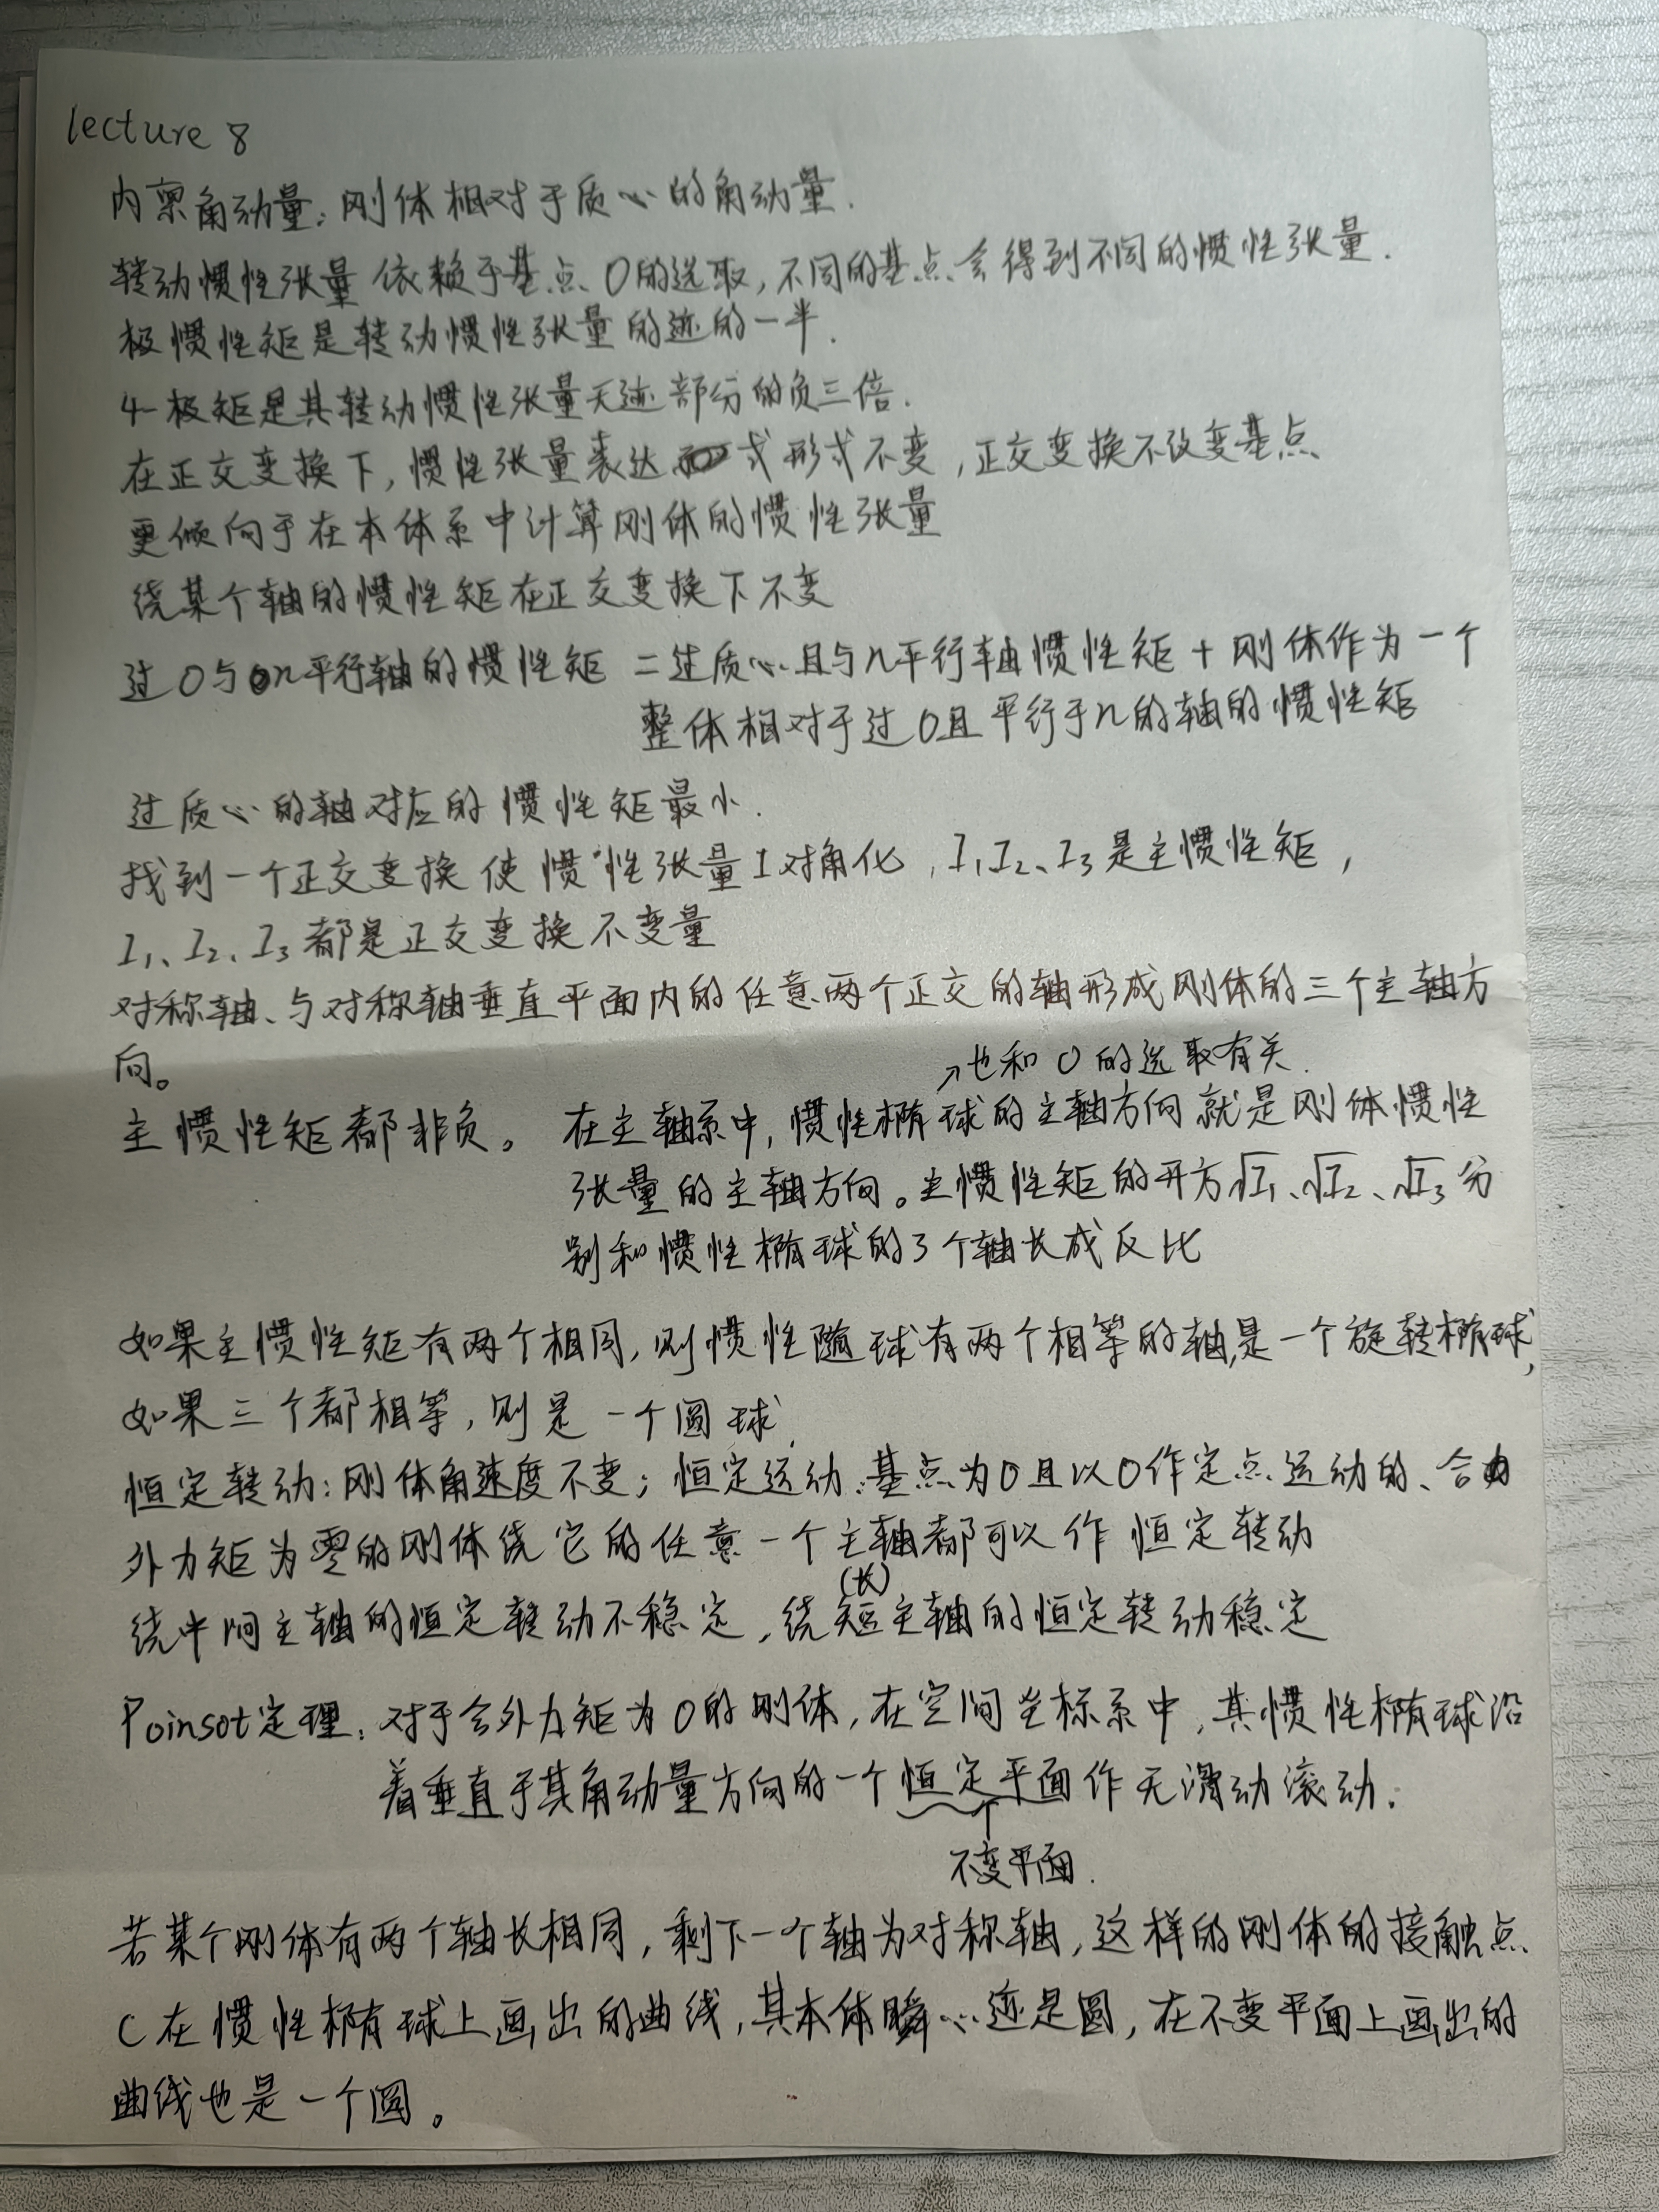 lecture 8
内禀角动量：刚体相对于质心的角动量.
转动惯性张量依赖于基点O的选取，不同的基点会得到不同的惯性张量.
极惯性矩是转动惯性张量的迹的一半.
4-极矩是其转动惯性张量无迹部分的负三倍.
在正交变换下，惯性张量表达式形式不变，正交变换不改变基点
更倾向于在本体系中计算刚体的惯性张量
绕某个轴的惯性矩在正交变换下不变
过O与n平行轴的惯性矩 = 过质心且与n平行轴惯性矩 + 刚体作为一个
整体相对于过O且平行于n的轴的惯性矩
过质心的轴对应的惯性矩最小.
找到一个正交变换使惯性张量I对角化，I₁、I₂、I₃是主惯性矩，
I₁、I₂、I₃都是正交变换不变量
对称轴、与对称轴垂直平面内的任意两个正交的轴形成刚体的三个主轴方
向。
↗也和O的选取有关.
主惯性矩都非负。 在主轴系中，惯性椭球的主轴方向就是刚体惯性
张量的主轴方向。主惯性矩的开方√I₁、√I₂、√I₃分
别和惯性椭球的3个轴长成反比
如果主惯性矩有两个相同，则惯性随球有两个相等的轴，是一个旋转椭球，
如果三个都相等，则是一个圆球.
恒定转动：刚体角速度不变；恒定运动：基点为O且以O作定点运动的、合
外力矩为零的刚体绕它的任意一个主轴都可以作恒定转动
(长)
绕中间主轴的恒定转动不稳定，绕短主轴的恒定转动稳定
Poinsot定理：对于合外力矩为0的刚体，在空间坐标系中，其惯性椭球沿
着垂直于其角动量方向的一个恒定平面作无滑动滚动.
↑
不变平面.
若某个刚体有两个轴长相同，剩下一个轴为对称轴，这样的刚体的接触点
C在惯性椭球上画出的曲线，其本体瞬心迹是圆，在不变平面上画出的
曲线也是一个圆。